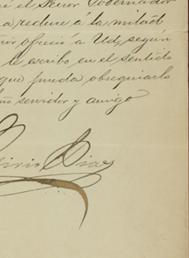 el Señor Gobernador
reduce á la mitad
ofició á Ud, según
le escribo en el sentido
que pueda obsequiarlo
servidor y amigo
Diaz